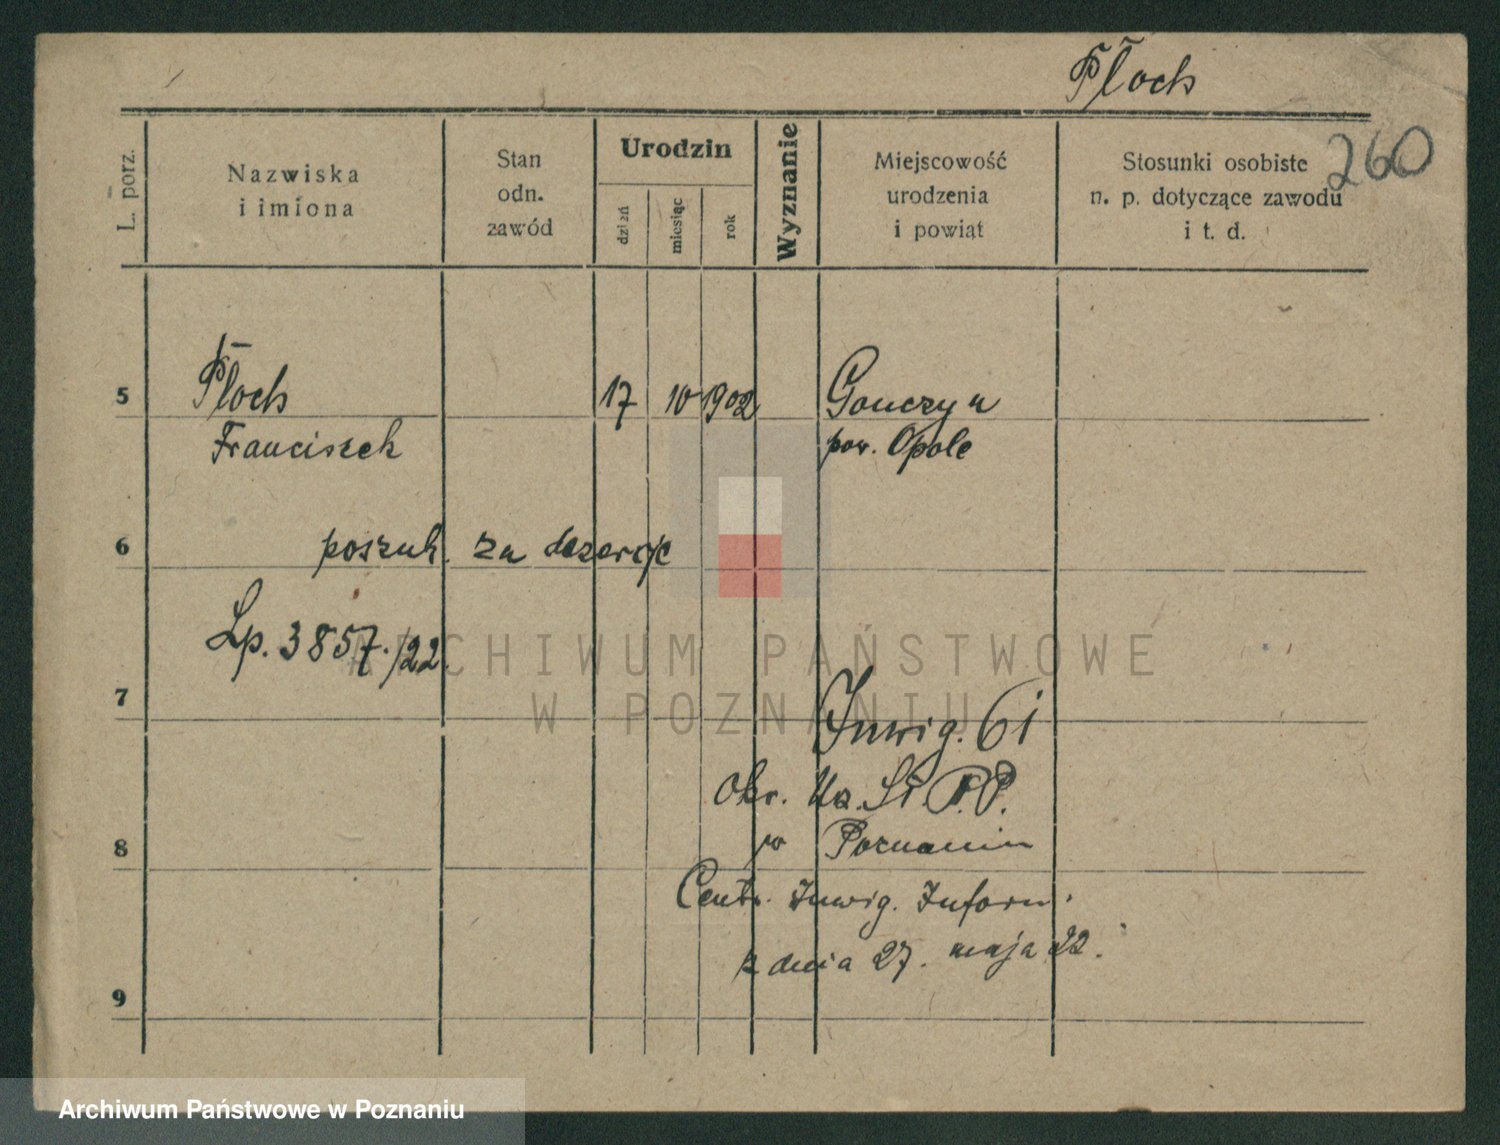 Płoch
260
L. porz.
Nazwiska
i imiona
Stan
odn.
zawód
Urodzin
dzień
miesiąc
rok
Wyznanie
Miejscowość
urodzenia
i powiat
Stosunki osobiste
n. p. dotyczące zawodu
i t. d.
5
Płoch
17 10 1902
Gonczyn
Franciszek
pow. Opole
6
poszuk. za dezercję
Lp. 3857./22.
7
Inwig. 61
Okr. Uz. St. P.P.
8
w Poznaniu
Centr. Inwig. Inform.
z dnia 27. maja 22.
9
ARCHIWUM PAŃSTWOWE
W POZNANIU
Archiwum Państwowe w Poznaniu